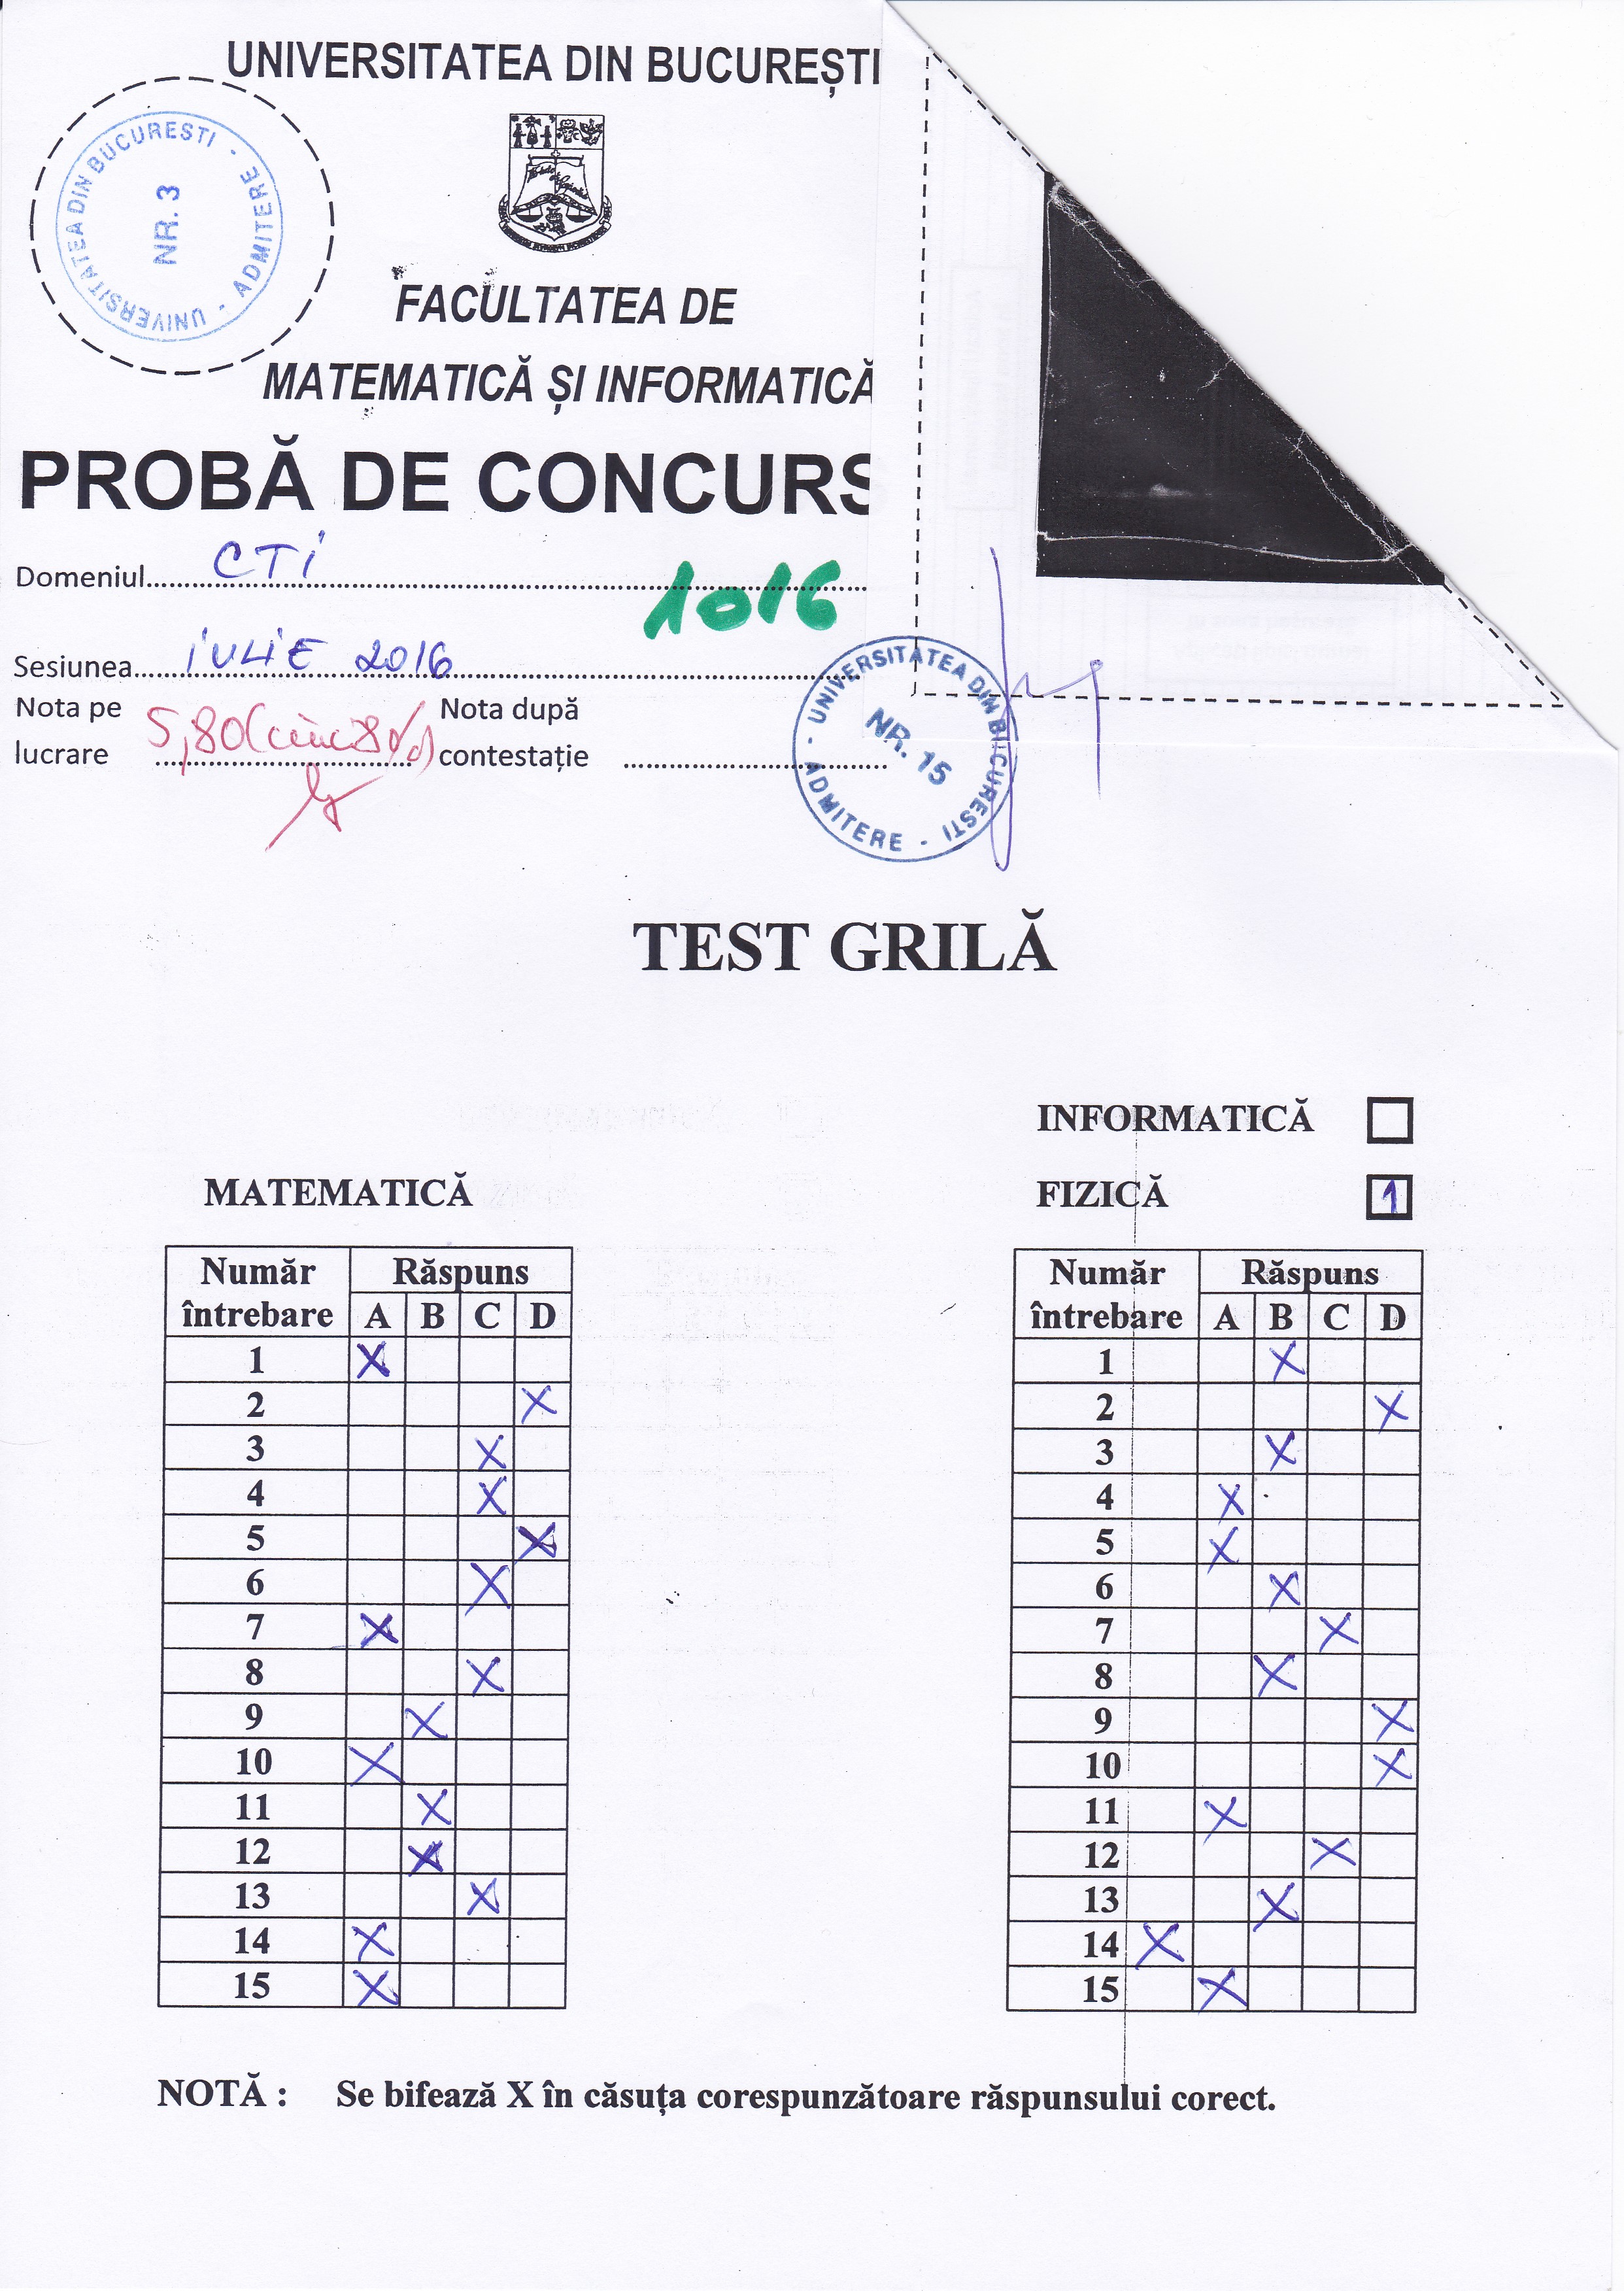 UNIVERSITATEA DIN BUCUREȘTI
UNIVERSITATEA DIN BUCURESTI - ADMITERE -
NR. 3
FACULTATEA DE
MATEMATICĂ ȘI INFORMATICĂ
PROBĂ DE CONCURS
Domeniul CTI
1016
Sesiunea IULIE 2016
Nota pe lucrare 5,80 (cinci 80%)
Nota după contestație
UNIVERSITATEA DIN BUCURESTI - ADMITERE -
NR. 15
TEST GRILĂ
INFORMATICĂ
MATEMATICĂ
FIZICĂ 1
Număr întrebare Răspuns
A B C D
1 X
2 X
3 X
4 X
5 X
6 X
7 X
8 X
9 X
10 X
11 X
12 X
13 X
14 X
15 X
Număr întrebare Răspuns
A B C D
1 X
2 X
3 X
4 X
5 X
6 X
7 X
8 X
9 X
10 X
11 X
12 X
13 X
14 X
15 X
NOTĂ : Se bifează X în căsuța corespunzătoare răspunsului corect.